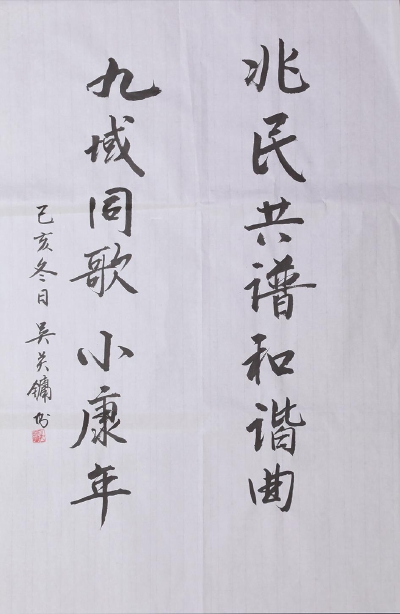 兆民共谱和谐曲
九域同歌小康年
己亥冬日吴关镛书